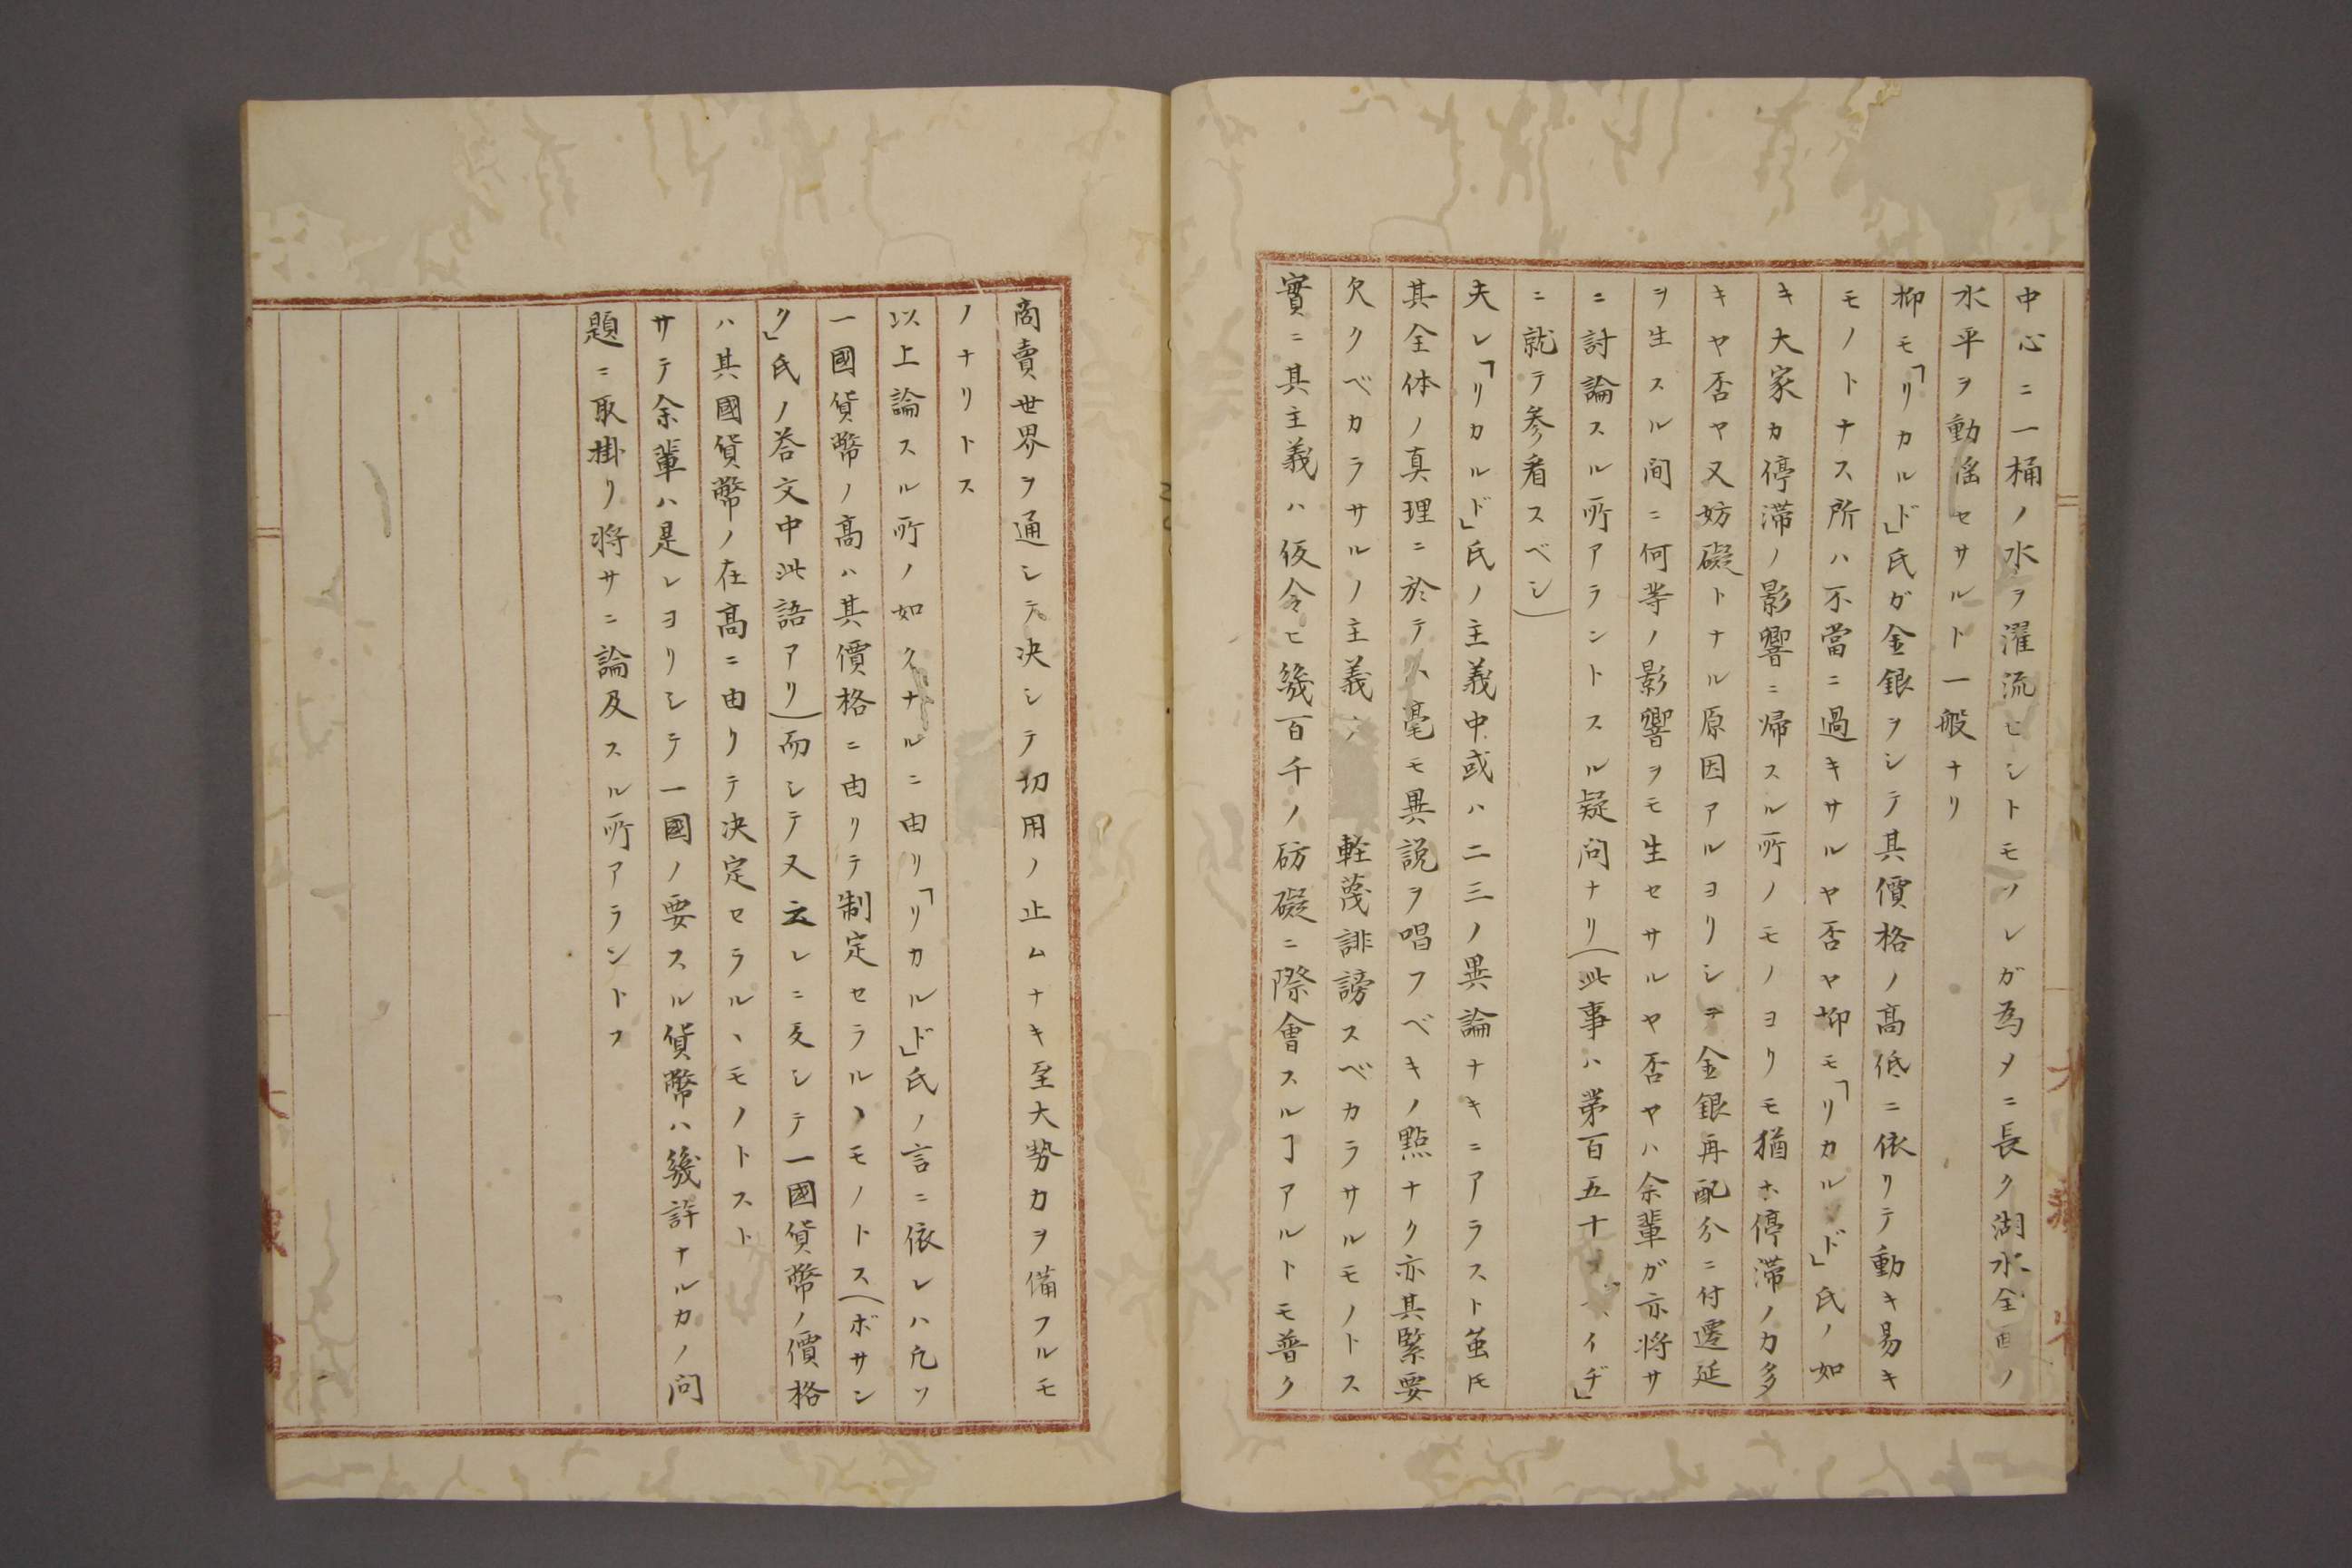 中心ニ一桶ノ水ヲ濯流セシトモソレガ為メニ長ク湖水全面ノ
水平ヲ動揺セサルト一般ナリ
抑モ「リカルド」氏ガ金銀ヲシテ其價格ノ髙低ニ依リテ動キ易キ
モノトナス所ハ不當ニ過キサルヤ否ヤ抑モ「リカルド」氏ノ如
キ大家カ停滞ノ影響ニ帰スル所ノモノヨリモ猶ホ停滞ノカ多
キヤ否ヤ又妨礙トナル原因アルヨリシテ金銀再配分ニ付遷延
ヲ生スル间ニ何等ノ影響ヲモ生セサルヤ否ヤハ余輩ガ亦将サ
ニ討論スル所アラントスル疑问ナリ(此事ハ第百五十イヂ」
ニ就テ参看スベシ)
夫レ「リカルド」氏ノ主義中或ハ二三ノ異論ナキニアラスト虽𪜈
其全体ノ真理ニ於テハ毫モ異説ヲ唱フベキノ點ナク亦其緊要
欠クベカラサルノ主義ハ軽蔑誹謗スベカラサルモノトス
實ニ其主義ハ仮令ヒ幾百千ノ妨礙ニ際會スルヿアルトモ普ク
商賣世界ヲ通シテ决シテ切用ノ止ムナキ至大勢力ヲ備フルモ
ノナリトス
以上論スル所ノ如クナルニ由リ「リカルド」氏ノ言ニ依レハ凢ソ
一國貨幣ノ髙ハ其價格ニ由リテ制定セラルヽモノトス(ボサン
ク」氏ノ荅文中此語アリ)而シテ又云レニ反シテ一國貨幣ノ價格
ハ其國貨幣ノ在髙ニ由リテ决定セラルヽモノトスト
サテ余輩ハ是レヨリシテ一國ノ要スル貨幣ハ幾許ナルカノ问
題ニ取掛リ将サニ論及スル所アラントス